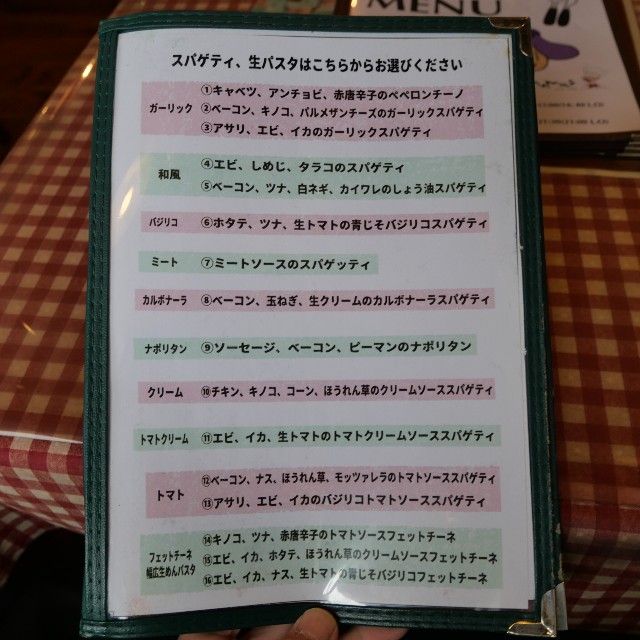 MENU
スパゲティ、生パスタはこちらからお選びください
ガーリック
①キャベツ、アンチョビ、赤唐辛子のペペロンチーノ
②ベーコン、キノコ、パルメザンチーズのガーリックスパゲティ
③アサリ、エビ、イカのガーリックスパゲティ
和風
④エビ、しめじ、タラコのスパゲティ
⑤ベーコン、ツナ、白ネギ、カイワレのしょう油スパゲティ
バジリコ
⑥ホタテ、ツナ、生トマトの青じそバジリコスパゲティ
ミート
⑦ミートソースのスパゲッティ
カルボナーラ
⑧ベーコン、玉ねぎ、生クリームのカルボナーラスパゲティ
ナポリタン
⑨ソーセージ、ベーコン、ピーマンのナポリタン
クリーム
⑩チキン、キノコ、コーン、ほうれん草のクリームソーススパゲティ
トマトクリーム
⑪エビ、イカ、生トマトのトマトクリームソーススパゲティ
トマト
⑫ベーコン、ナス、ほうれん草、モッツァレラのトマトソーススパゲティ
⑬アサリ、エビ、イカのバジリコトマトソーススパゲティ
フェットチーネ
幅広生めんパスタ
⑭キノコ、ツナ、赤唐辛子のトマトソースフェットチーネ
⑮エビ、イカ、ホタテ、ほうれん草のクリームソースフェットチーネ
⑯エビ、イカ、ナス、生トマトの青じそバジリコフェットチーネ